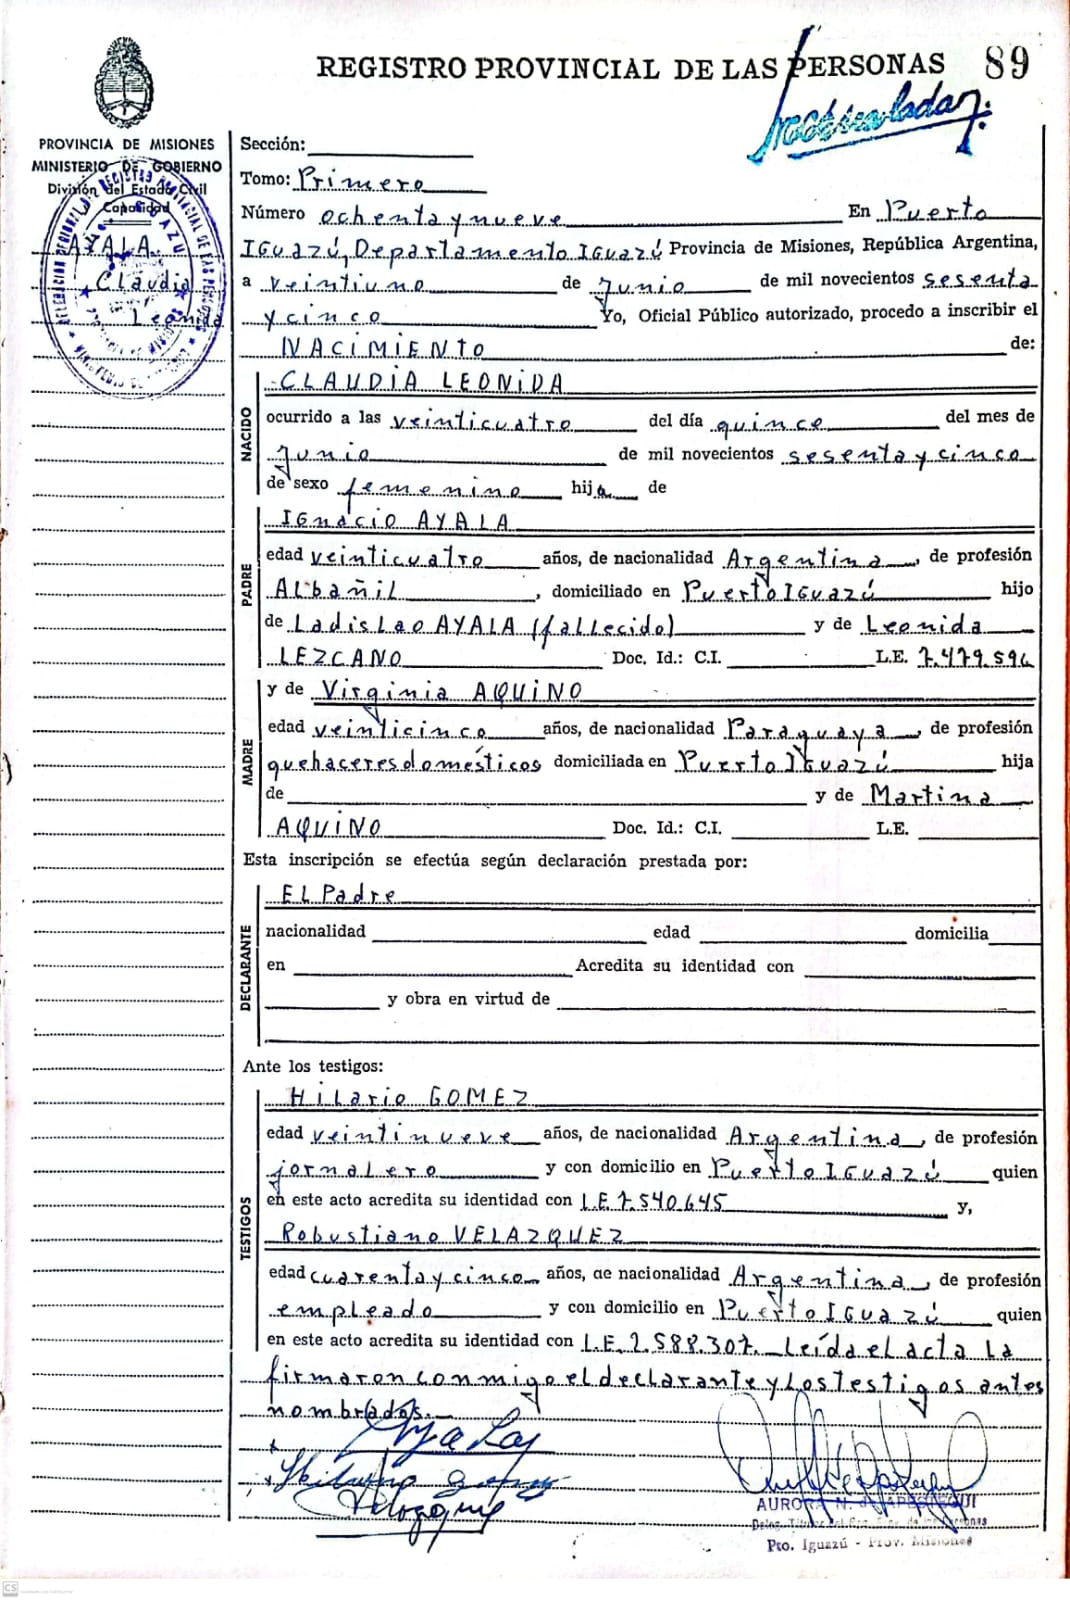 REGISTRO PROVINCIAL DE LAS PERSONAS 89
PROVINCIA DE MISIONES
MINISTERIO DE GOBIERNO
División del Estado Civil
Capacidad
AYALA
Claudia
Leonida
Sección:
Tomo: Primero
Número ochenta y nueve En Puerto
Iguazú, Departamento Iguazú Provincia de Misiones, República Argentina,
a veintiuno de Junio de mil novecientos sesenta
y cinco Yo, Oficial Público autorizado, procedo a inscribir el
NACIMIENTO de:
NACIDO
CLAUDIA LEONIDA
ocurrido a las veinticuatro del día quince del mes de
Junio de mil novecientos sesenta y cinco
de sexo femenino hija de
PADRE
Ignacio AYALA
edad veinticuatro años, de nacionalidad Argentina, de profesión
Albañil, domiciliado en Puerto Iguazú hijo
de Ladislao AYALA (fallecido) y de Leonida
LEZCANO Doc. Id.: C.I. L.E. 7.479.594
MADRE
y de Virginia AQUINO
edad veinticinco años, de nacionalidad Paraguaya, de profesión
quehaceres domésticos domiciliada en Puerto Iguazú hija
de y de Martina
AQUINO Doc. Id.: C.I. L.E.
Esta inscripción se efectúa según declaración prestada por:
DECLARANTE
El Padre
nacionalidad edad domicilia
en Acredita su identidad con
y obra en virtud de
Ante los testigos:
TESTIGOS
Hilario GOMEZ
edad veintinueve años, de nacionalidad Argentina, de profesión
jornalero y con domicilio en Puerto Iguazú quien
en este acto acredita su identidad con L.E. 7.540.645 y,
Robustiano VELAZQUEZ
edad cuarenta y cinco años, de nacionalidad Argentina, de profesión
empleado y con domicilio en Puerto Iguazú quien
en este acto acredita su identidad con L.E. 2.588.307. Leída el acta la
firmaron conmigo el declarante y los testigos antes
nombrados.
AURORA N. de APESTEGUI
Pto. Iguazú - Prov. Misiones
CS